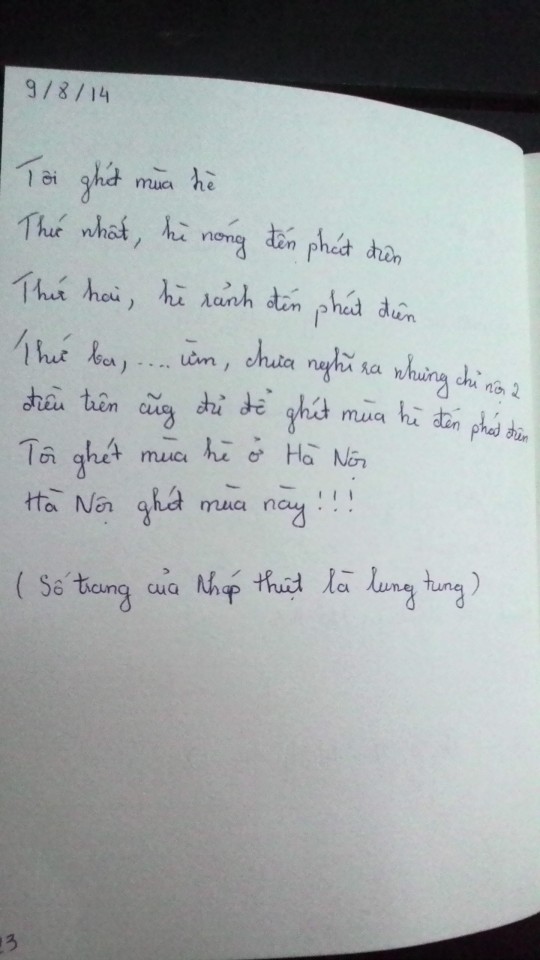 9/8/14
Tôi ghét mùa hè
Thứ nhất, hè nóng đến phát điên
Thứ hai, hè rảnh đến phát điên
Thứ ba, .... ùm, chưa nghĩ ra nhưng chỉ nội 2
điều trên cũg đủ để ghét mùa hè đến phát điên
Tôi ghét mùa hè ở Hà Nội
Hà Nội ghét mùa này!!!
(Số trang của Nháp thiệt là lung tung)
23